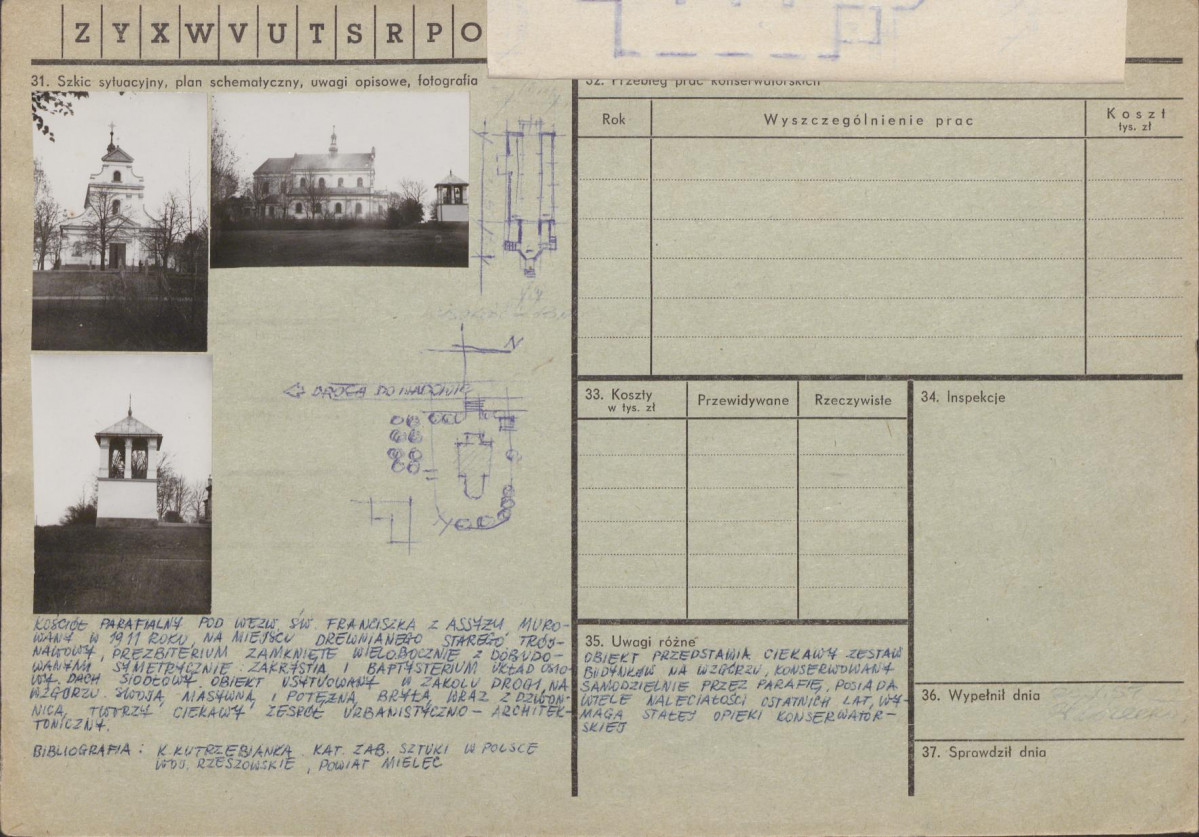 Z Y X W V U T S R P O
31. Szkic sytuacyjny, plan schematyczny, uwagi opisowe, fotografia
N
DROGA DO
KOŚCIÓŁ PARAFIALNY POD WEZW. ŚW. FRANCISZKA Z ASSYŻU MURO-
WANY W 1911 ROKU, NA MIEJSCU DREWNIANEGO STAREGO TRÓJ-
NAWOWY, PREZBITERIUM ZAMKNIĘTE WIELOBOCZNIE Z DOBUDO-
WANYMI SYMETRYCZNIE ZAKRYSTIĄ I BAPTYSTERIUM UKŁAD OSIO-
WY, DACH SIODŁOWY OBIEKT USYTUOWANY W ZAKOLU DROGI, NA
WZGÓRZU. SWOJĄ MASYWNĄ I POTĘŻNĄ BRYŁĄ WRAZ Z DZWON-
NICĄ, TWORZY CIEKAWY ZESPÓŁ URBANISTYCZNO - ARCHITEK-
TONICZNY.
BIBLIOGRAFIA : K. KUTRZEBIANKA KAT. ZAB. SZTUKI W POLSCE
WOJ. RZESZOWSKIE, POWIAT MIELEC
32. Przebieg prac konserwatorskich
Rok
Wyszczególnienie prac
Koszt
tys. zł
33. Koszty
w tys. zł
Przewidywane
Rzeczywiste
34. Inspekcje
35. Uwagi różne
OBIEKT PRZEDSTAWIA CIEKAWY ZESTAW
BUDYNKÓW NA WZGÓRZU, KONSERWOWANY
SAMODZIELNIE PRZEZ PARAFIĘ, POSIADA
WIELE NALECIAŁOŚCI OSTATNICH LAT, WY-
MAGA STAŁEJ OPIEKI KONSERWATOR-
SKIEJ
36. Wypełnił dnia
37. Sprawdził dnia